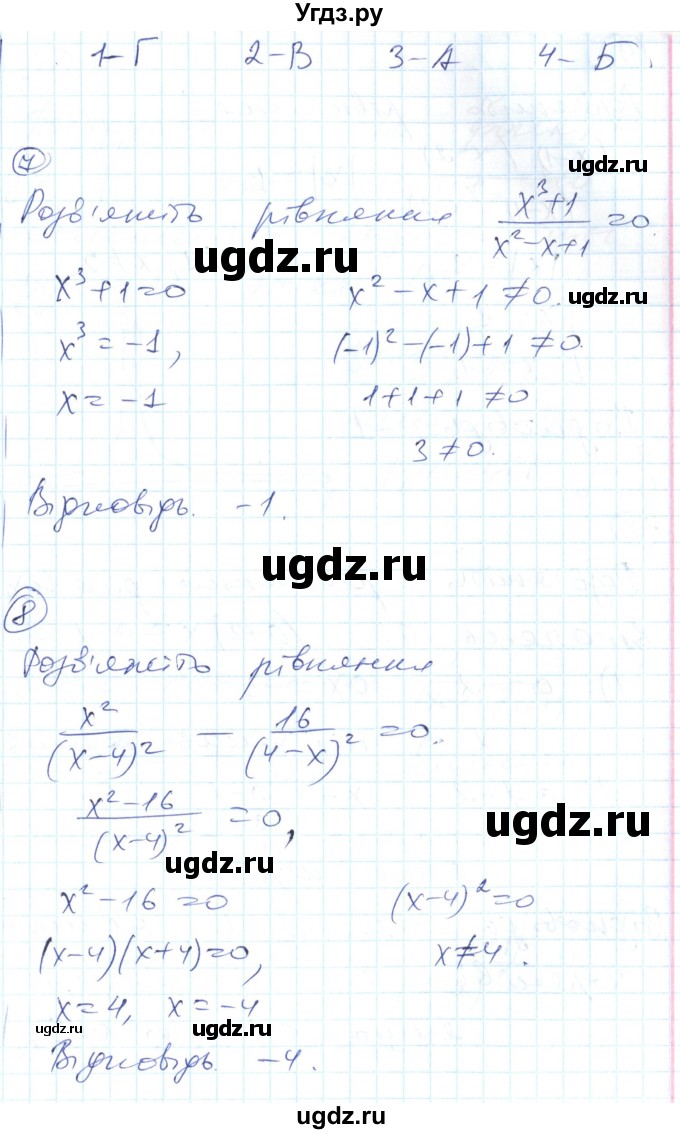 Угдз.ру
1-Г 2-В 3-А 4-Б.
ugdz.ru
7
Розв'яжіть рівняння (x³+1)/(x²-x+1) = 0.
ugdz.ru
x³+1=0 x²-x+1≠0.
ugdz.ru
x³=-1, (-1)²-(-1)+1≠0.
ugdz.ru
x=-1 1+1+1≠0
3≠0.
Відповідь. -1.
ugdz.ru
8
Розв'яжіть рівняння
x²/(x-4)² - 16/(4-x)² = 0.
(x²-16)/(x-4)² = 0,
ugdz.ru
ugdz.ru
x²-16=0 (x-4)²=0
(x-4)(x+4)=0, x≠4.
x=4, x=-4
ugdz.ru
ugdz.ru
Відповідь. -4.
ugdz.ru